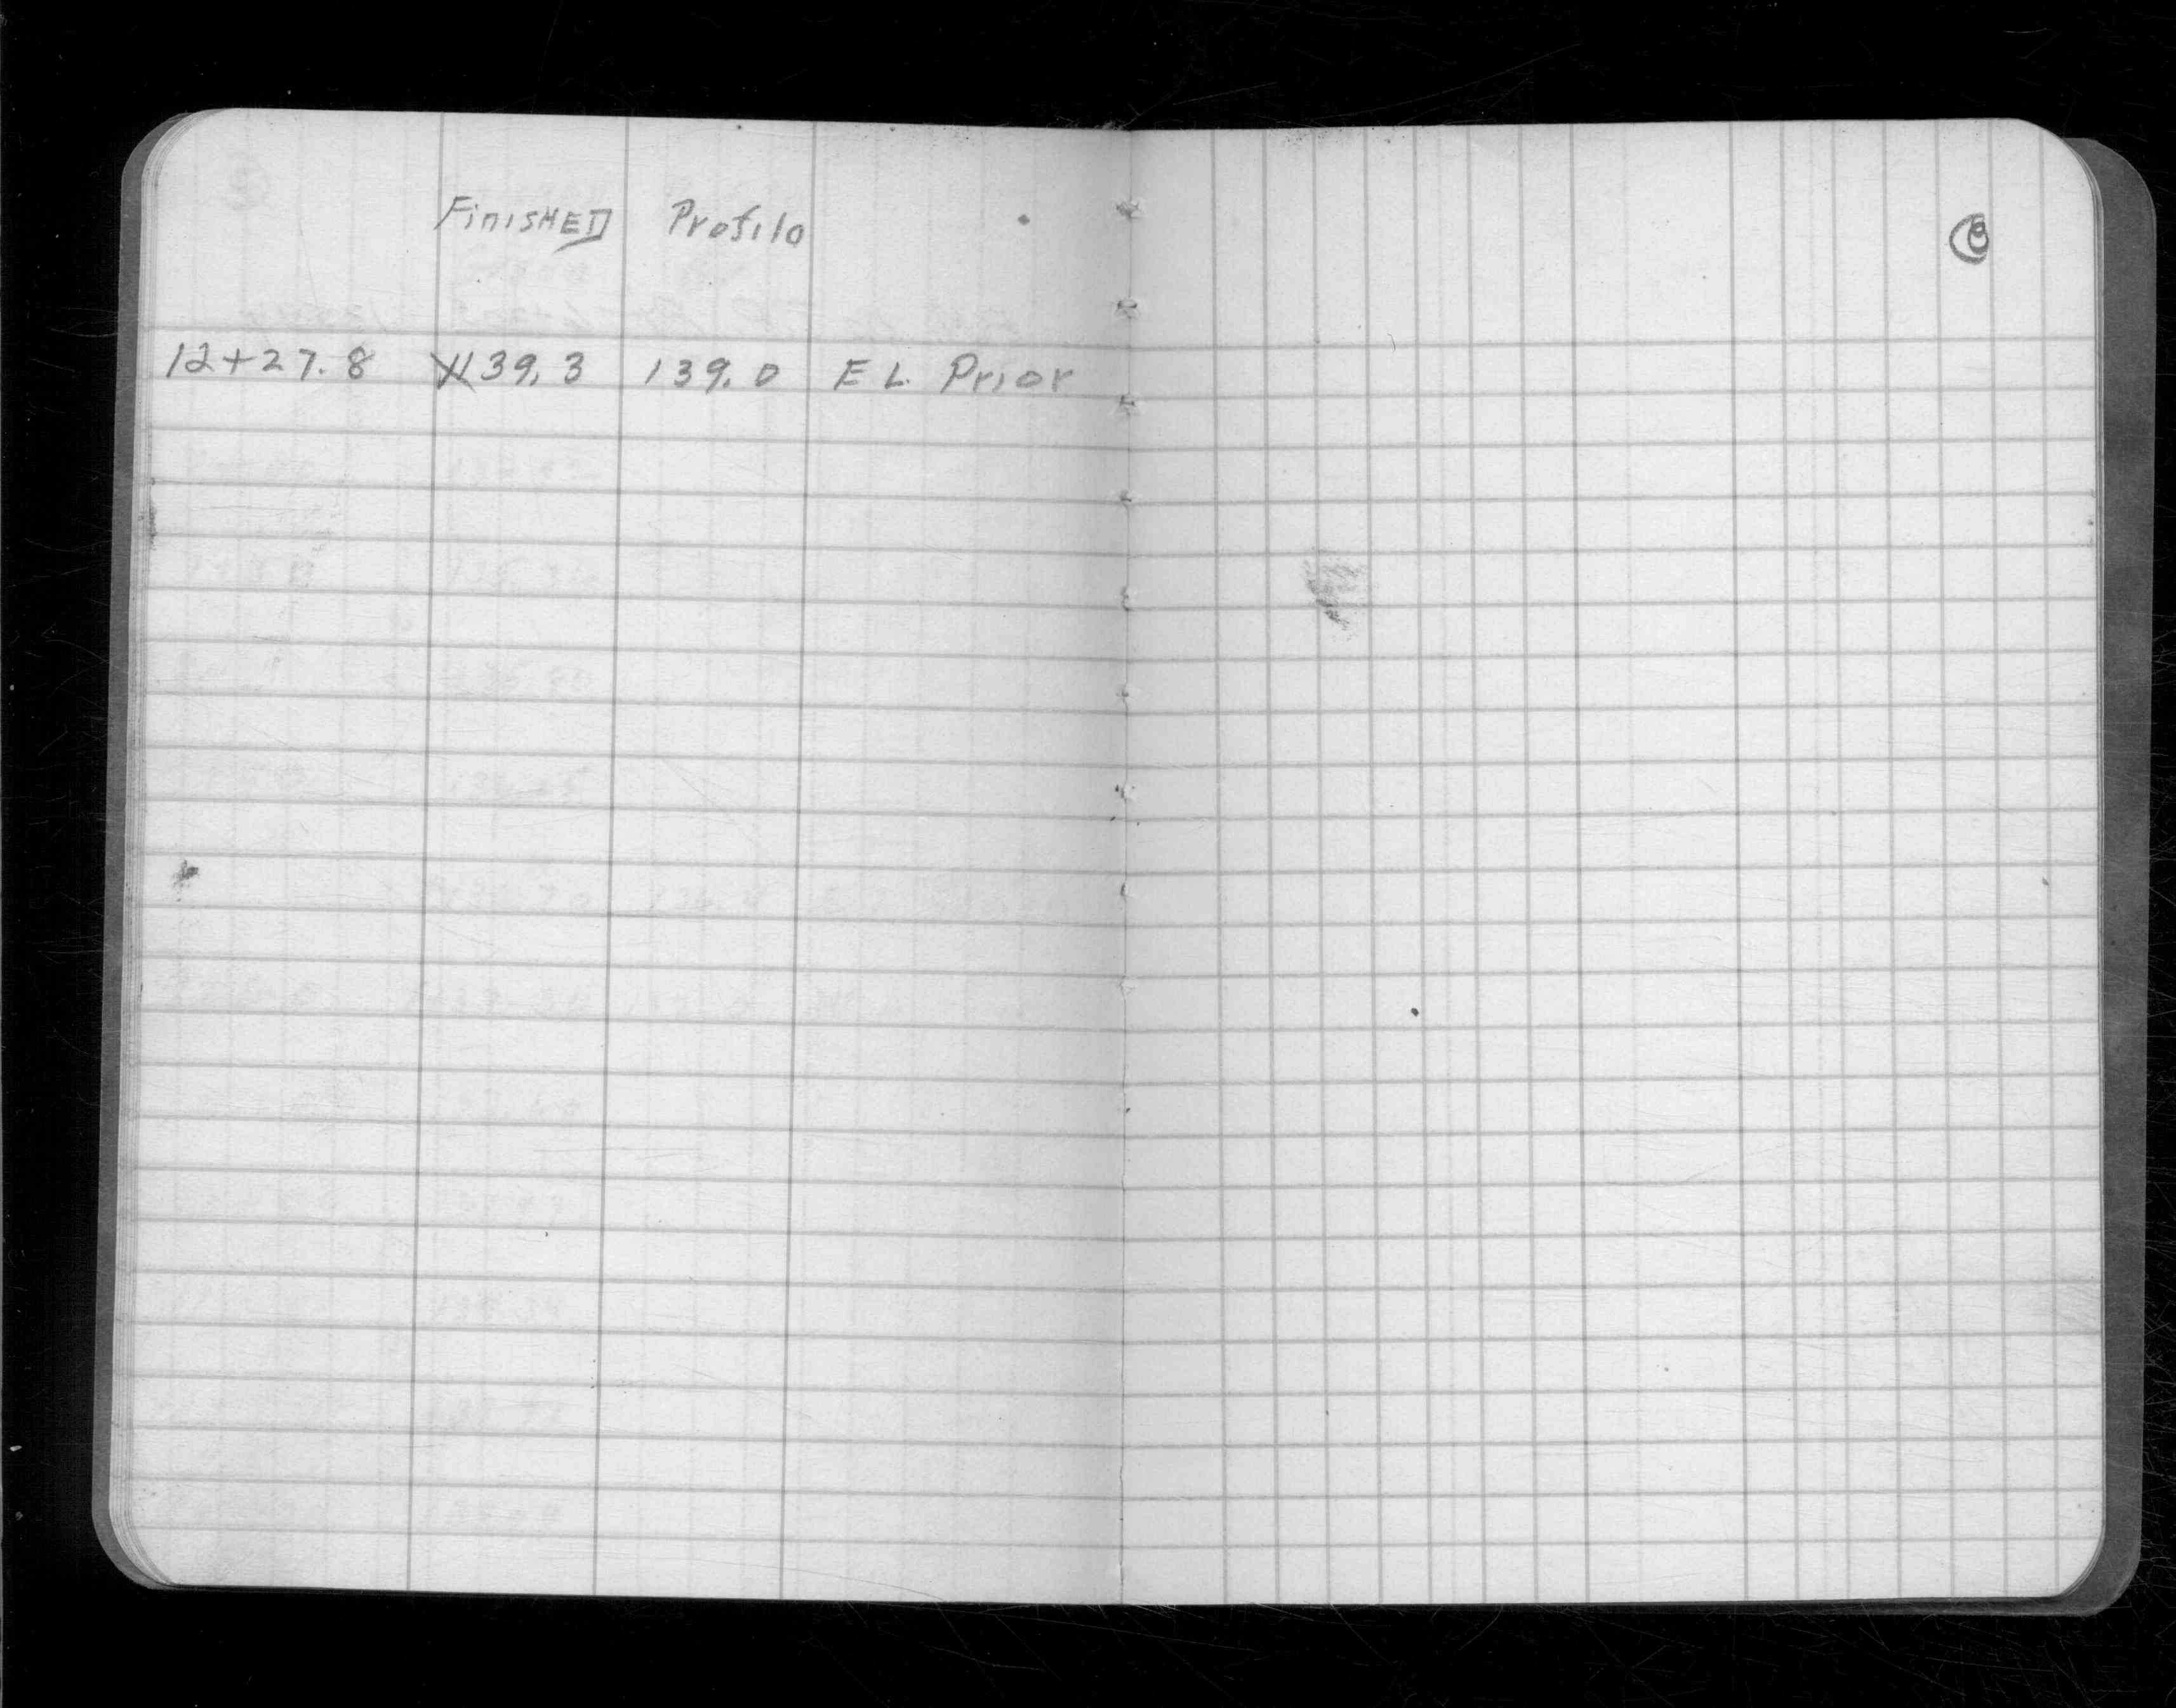 FINISHED Profile
12+27.8 139.3 139.0 EL. Prior